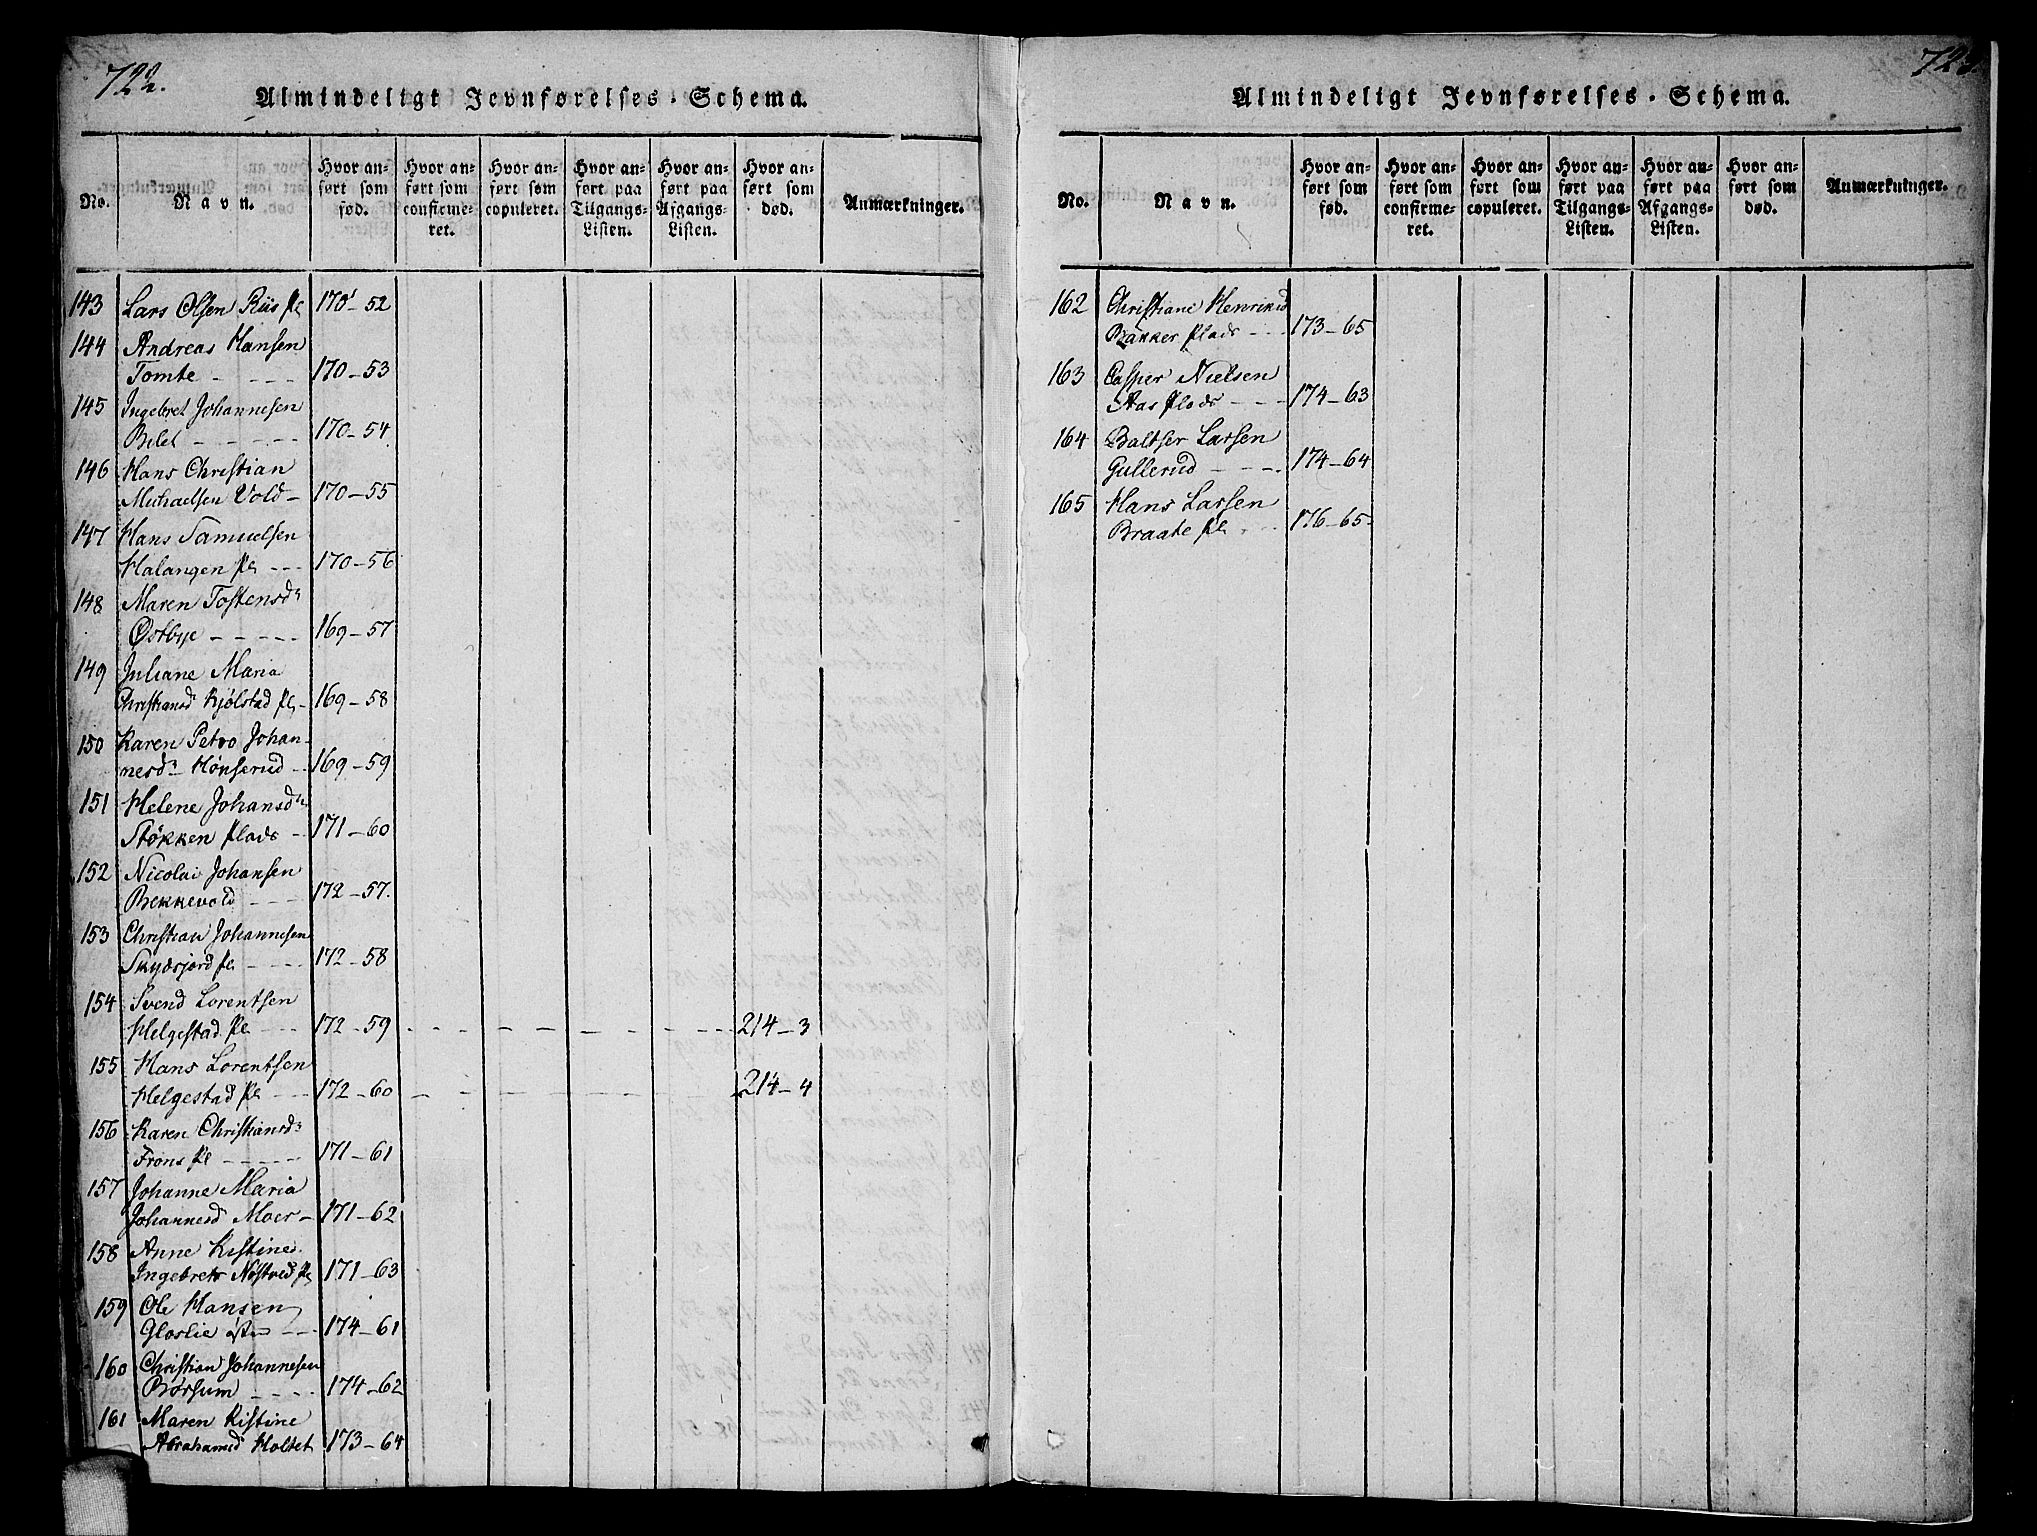 722.
Almindeligt Jevnførelses-Schema.
No.
Navn.
Hvor an-
ført som
fød.
Hvor an-
ført som
confirme-
ret.
Hvor an-
ført som
copuleret.
Hvor an-
ført paa
Tilgangs-
Listen.
Hvor an-
ført paa
Afgangs-
Listen.
Hvor an-
ført som
død.
Anmærkninger.
143 Lars Olsen Riis Pl 170-52
144 Andreas Hansen
Tomte - - - - 170-53
145 Ingebret Johannesen
Bilet - - - - - 170-54
146 Hans Christian
Michaelsen Vold - 170-55
147 Hans Samuelsen
Halangen Pl - - - 170-56
148 Maren Tostensdr
Østbye - - - - - 169-57
149 Juliane Maria
Christiansd Kjølstad Pl - 169-58
150 Karen Petro Johan-
nesdr Hønserud - 169-59
151 Helene Johansdr
Støkken Plads - 171-60
152 Nicolai Johansen
Bekkevold - - - 172-57.
153 Christian Johannesen
Skydsjord Pl - - - 172-58
154 Svend Lorentsen
Helgestad Pl - - - 172-59 - - - - - - 214-3
155 Hans Lorentsen
Helgestad Pl - - - 172-60 - - - - - - 214-4
156 Karen Christiansdr
Frons Pl - - - - - 171-61
157 Johanne Maria
Johannesd Moer - 171-62
158 Anne Kistine
Ingebretr Nøstved Pl 171-63
159 Ole Hansen
Gloslie øst - - - 174-61
160 Christian Johannesen
Børsum - - - - 174-62
161 Maren Kistine
Abrahamsd Holtet 173-64
723.
Almindeligt Jevnførelses-Schema.
No.
Navn.
Hvor an-
ført som
fød.
Hvor an-
ført som
confirme-
ret.
Hvor an-
ført som
copuleret.
Hvor an-
ført paa
Tilgangs-
Listen.
Hvor an-
ført paa
Afgangs-
Listen.
Hvor an-
ført som
død.
Anmærkninger.
162 Christiane Henriksd
Bakker Plads - - - 173-65
163 Casper Nielsen
Aas Plads - - - 174-63
164 Baltser Larsen
Gullerud - - - - 174-64
165 Hans Larsen
Braate Pl - - - 176-65-